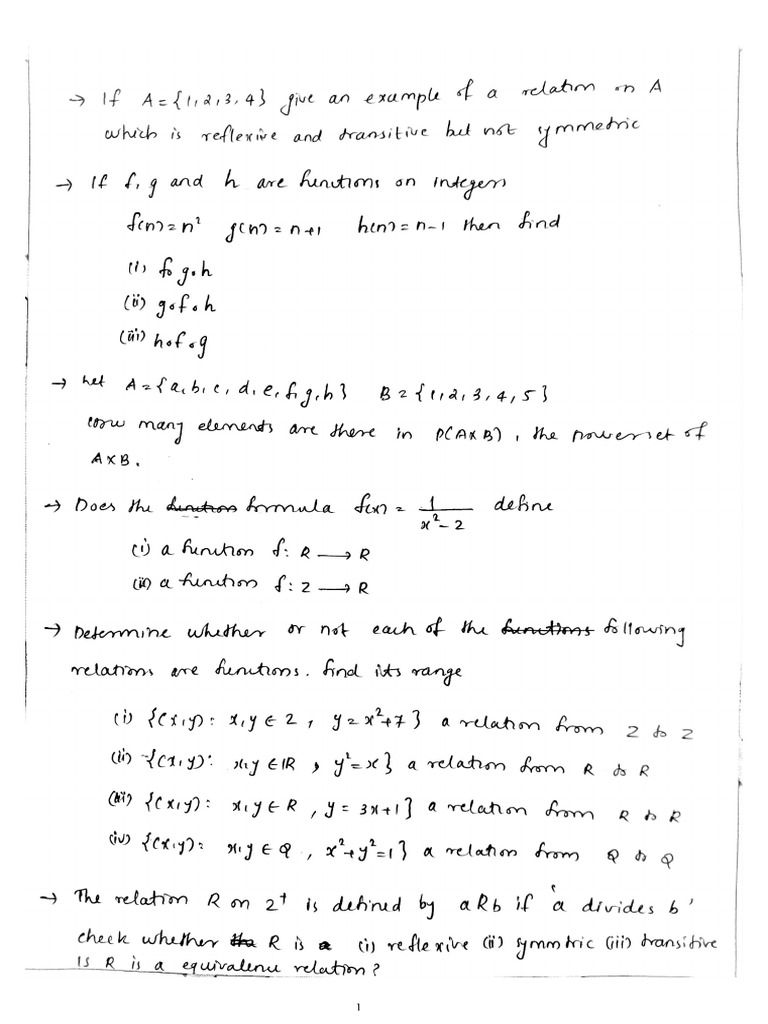 → If A = {1, 2, 3, 4} give an example of a relation on A
which is reflexive and transitive but not symmetric
→ If f, g and h are functions on integers
f(n) = n² g(n) = n+1 h(n) = n-1 then find
(i) f∘g∘h
(ii) g∘f∘h
(iii) h∘f∘g
→ Let A = {a, b, c, d, e, f, g, h} B = {1, 2, 3, 4, 5}
How many elements are there in P(A×B), the powerset of
A×B.
→ Does the function formula f(x) = 1/(x²-2) define
(i) a function f: R ⟶ R
(ii) a function f: Z ⟶ R
→ Determine whether or not each of the functions following
relations are functions. find its range
(i) {(x,y): x,y ∈ Z, y = x²+7} a relation from Z to Z
(ii) {(x,y): x,y ∈ IR, y² = x} a relation from R to R
(iii) {(x,y): x,y ∈ R, y = 3x+1} a relation from R to R
(iv) {(x,y): x,y ∈ Q, x²+y²=1} a relation from Q to Q
→ The relation R on Z⁺ is defined by aRb if 'a divides b'
check whether the R is a (i) reflexive (ii) symmtric (iii) transitive
Is R is a equivalence relation?
1